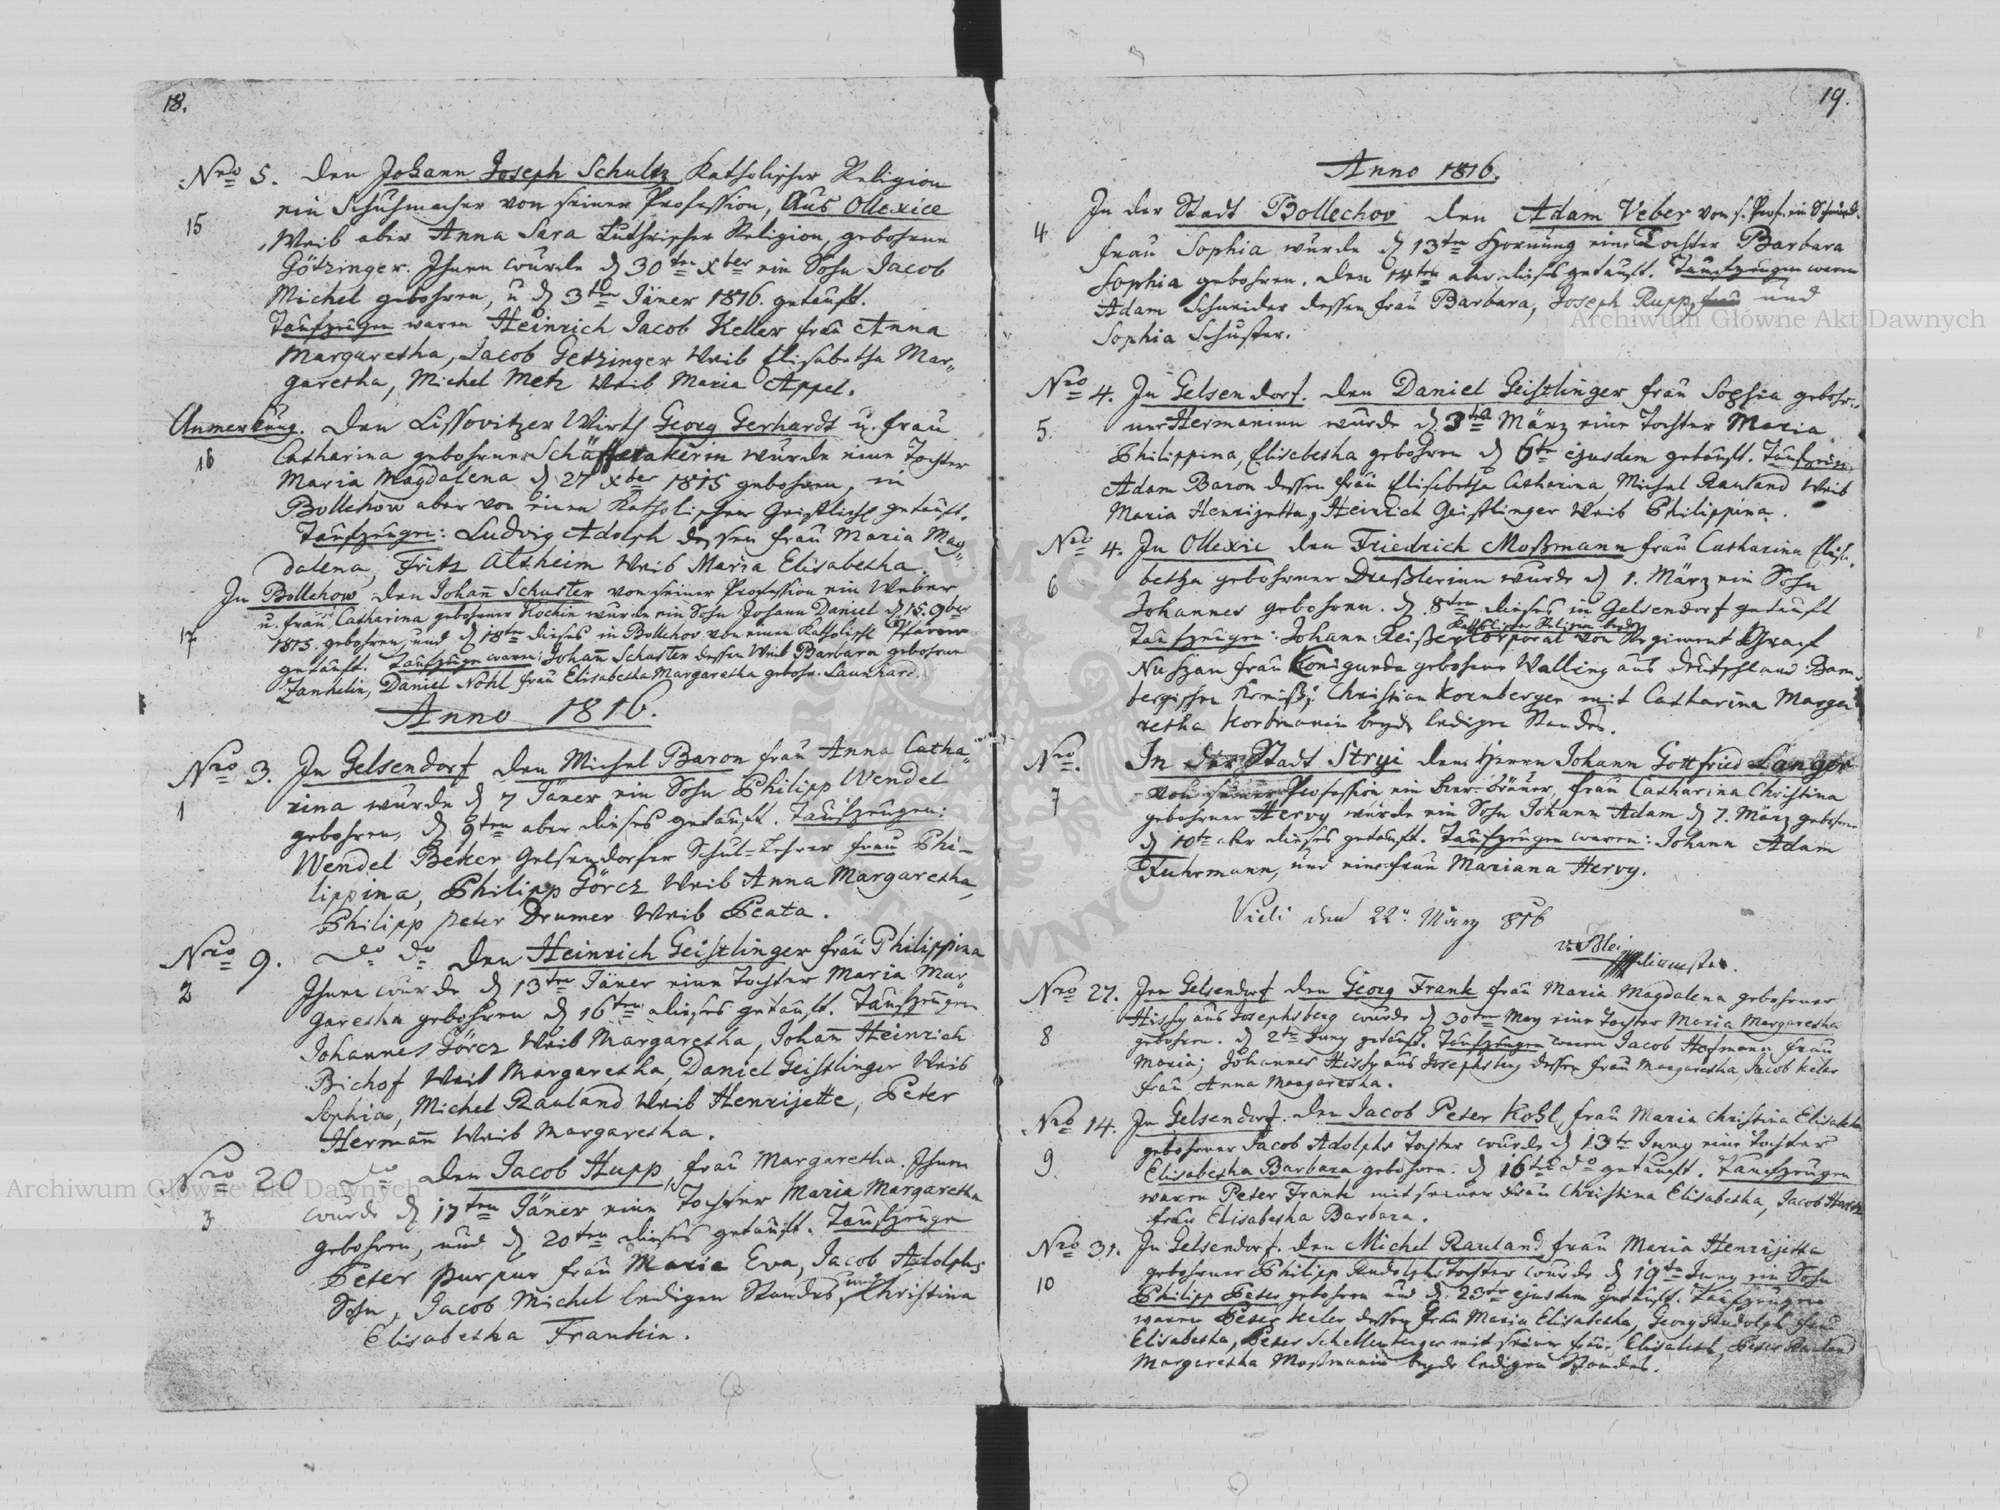 18.
Nro 5. Den Johann Joseph Schultz Katholischer Religion
ein Schuhmacher von seiner Profession, Aus Ollexice
15
Weib aber Anna Sara Luthrischer Religion, gebohrne
Götzinger. Ihnen wurde d 30ten Xber ein Sohn Jacob
Michel gebohren, u d 3ten Jäner 1816. getauft.
Taufzeugen waren Heinrich Jacob Keller frau Anna
Margaretha, Jacob Getzinger Weib Elisabetha Mar=
garetha, Michel Metz Weib Maria Appel.
Anmerkung. Den Lissovitzer Wirth Georg Gerhardt u. frau
16
Catharina gebohrner wurde eine Tochter
Maria Magdalena d 27 Xber 1815 gebohren, in
Bollehow aber von einem Katholischen Geistlich getauft.
Taufzeugen: Ludwig Adolph dessen frau Maria Mag=
dalena, Fritz Altheim Weib Maria Elisabetha.
In Bollehow den Johann Schuster von seiner Profession ein Weber
u. frau Catharina gebohrner Kochin wurde ein Sohn Johann Daniel d 15. 9ber
17
1815. gebohren, und d 18ten dieses in Bollehov von einem Katholisch Pfarrer
getauft. Taufzeuge waren: Johann Schuster dessen Weib Barbara gebohrne
Zankelin, Daniel Nohl frau Elisabetha Margaretha gebohr. Launhard.
Anno 1816.
Nro 3. In Gelsendorf den Michel Baron frau Anna Catha=
1
rina wurde d 7 Jäner ein Sohn Philipp Wendel
gebohren, d 9ten aber dieses getauft. Taufzeugen:
Wendel Beker Gelsendorfer Schul-Lehrer frau Phi-
lippina, Philipp Görcz Weib Anna Margaretha,
Philipp peter Drumer Weib Beata.
Nro 9. do do Den Heinrich Geistlinger frau Philippina
2
Ihnen wurde d 13ten Jäner eine Tochter Maria Mar
garetha gebohren d 16ten dieses getauft. Taufzeugen
Johannes Görcz Weib Margaretha, Johann Heinrich
Bichof Weib Margaretha, Daniel Geistlinger Weib
Sophia, Michel Rauland Weib Henrijette, Peter
Hermann Weib Margaretha.
Nro 20 do Den Jacob Hupp, frau Margaretha. Ihnen
3
wurde d 17ten Jäner eine Tochter Maria Margaretha
gebohren, und d 20ten dieses getauft. Taufzeuge
Peter purpur frau Maria Eva, Jacob Adolphs
Sohn, Jacob Michel ledigen Standes, und Christina
Elisabetha Frankin.
19.
Anno 1816.
In der Stadt Bollechov den Adam Veber von s. Prof. ein
4
frau Sophia wurde d 13ten Hornung eine Tochter Barbara
Sophia gebohren, den 14ten aber dieses getauft. Taufzeugen waren
Adam Schneider dessen frau Barbara, Joseph Rupp, und
Sophia Schuster.
Nro 4. In Gelsendorf. den Daniel Geistlinger frau Sophia gebohr=
5.
ner Hermaninn wurde d 3ten März eine Tochter Maria
Philippina, Elisabetha gebohren d 6ten ejusdem getauft.
Adam Baron dessen frau Elisabetha Catharina, Michel Rauland Weib
Maria Henrijetta, Heinrich Geistlinger Weib Philippina.
Nro 4. In Ollexic den Friedrich Moßmann frau Catharina Elisa=
6
betha gebohrner Dreßlerinn wurde d 1. März ein Sohn
Johannes gebohren. d 8ten dieses in Gelsendorf getauft
Katholischer Religion beyde
Taufzeugen: Johann Corporal von Regiment
frau Konigunda gebohrne Walling aus Deutschland Bam
Christian Kornberger mit Catharina Marga
retha Korbmanin beyde ledigen Standes.
Nro. In der Stadt Stryi dem Herrn Johann Gottfried Langer
7
von seiner Profession ein frau Catharina Christina
gebohrner Hervy wurde ein Sohn Johann Adam d 7. März gebohren
d 10te aber dieses getauft. Taufzeugen waren: Johann Adam
Fuhrmann, und eine frau Mariana Hervy.
den 22n März 816
Nro 27. In Gelsendorf den Georg Frank frau Maria Magdalena gebohrner
Hissy aus Josephsberg wurde d 30ten May eine Tochter Maria Margaretha
8
gebohren. d 2te Juny getauft. Taufzeugen waren Jacob Hofmann frau
Maria; Johannes Hissy aus Josephsberg dessen frau Margaretha, Jacob Keler
frau Anna Margaretha.
Nro 14. In Gelsendorf. den Jacob Peter Kohl, frau Maria Christina Elisabetha
gebohrner Jacob Adolphs Tochter wurde d 13te Juny eine Tochter
9.
Elisabetha Barbara gebohren. d 16ten do getauft. Taufzeugen
waren Peter Frank mit seiner frau Christina Elisabetha, Jacob
frau Elisabetha Barbara.
Nro 31. In Gelsendorf. den Michel Rauland frau Maria Henrijetta
gebohrner Philipp Rudolphs Tochter wurde d 19te Juny ein Sohn
10
Philipp Peter gebohren und d. 23te ejusdem getauft. Taufzeugen
waren Peter Keler dessen frau Maria Elisabetha, Georg Rudolph frau
Elisabetha, Peter Schellenberger mit seiner frau Elisabeth, Peter Rauland
Margaretha Moßmanin beyde ledigen Standes.
Archiwum Główne Akt Dawnych
Archiwum Główne Akt Dawnych